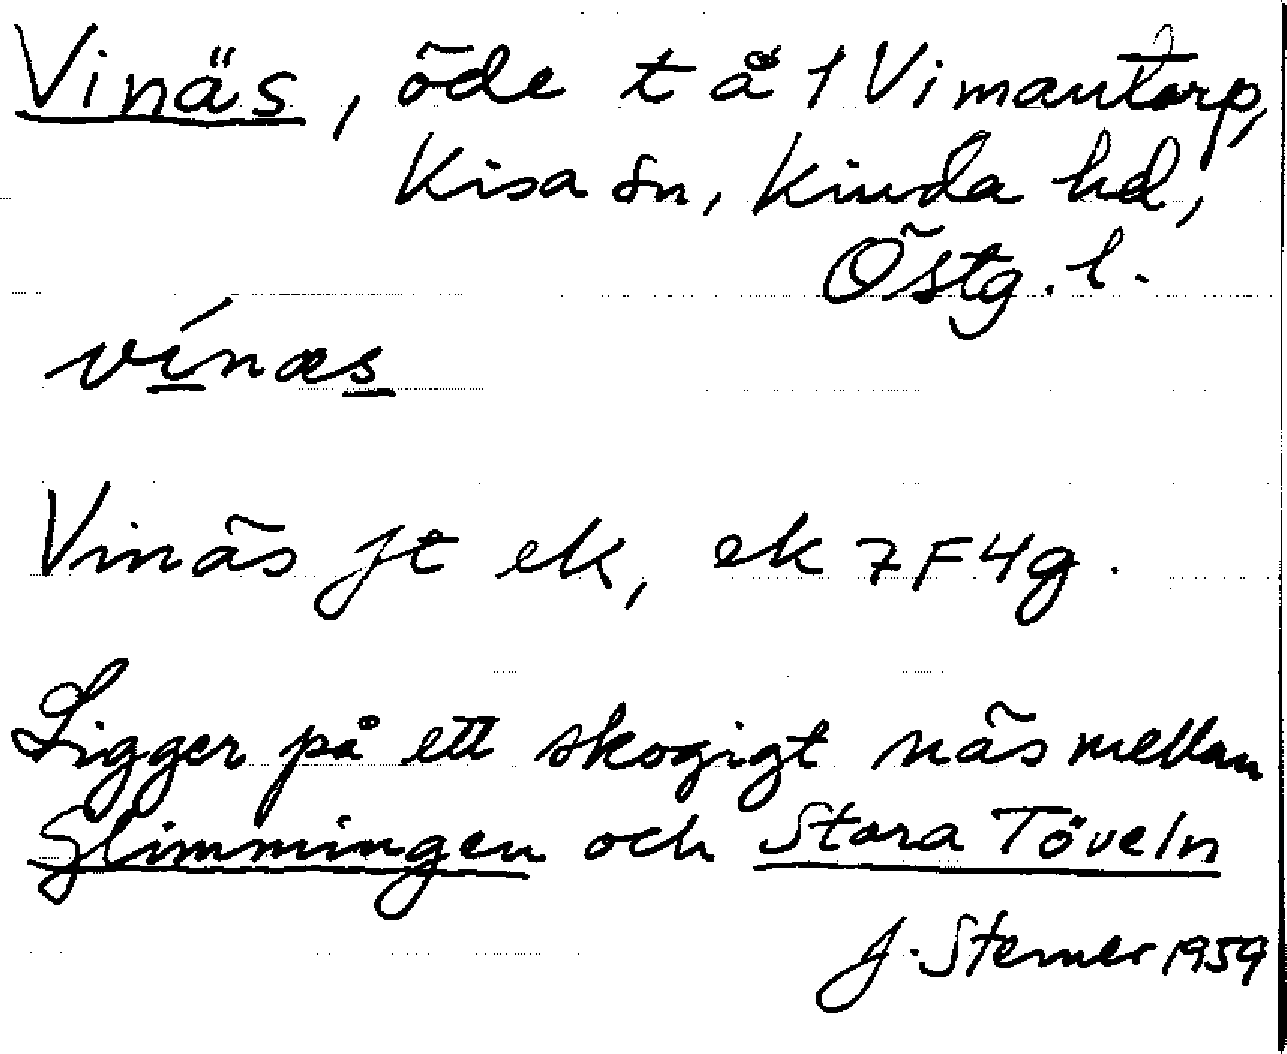 Vinäs, öde t å 1 Vimantorp,
Kisa sn, Kinda hd,
Östg. l.
vínæs
Vinäs jt ek, ek 7F4g.
Ligger på ett skogigt näs mellan
Glimmingen och Stora Töveln
J. Sterner 1959